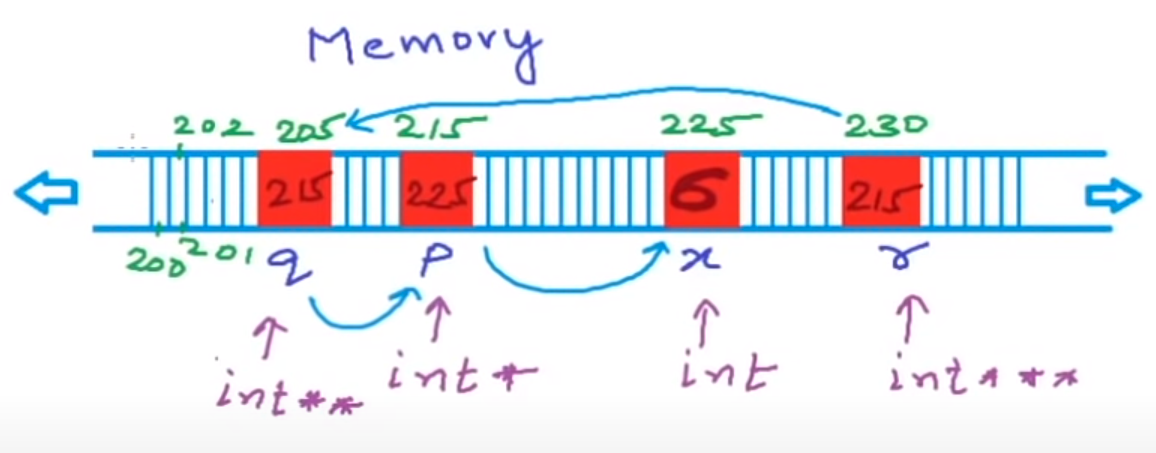 Memory
202 205 215 225 230
215 225 6 215
200 201 q p x r
int** int* int int***